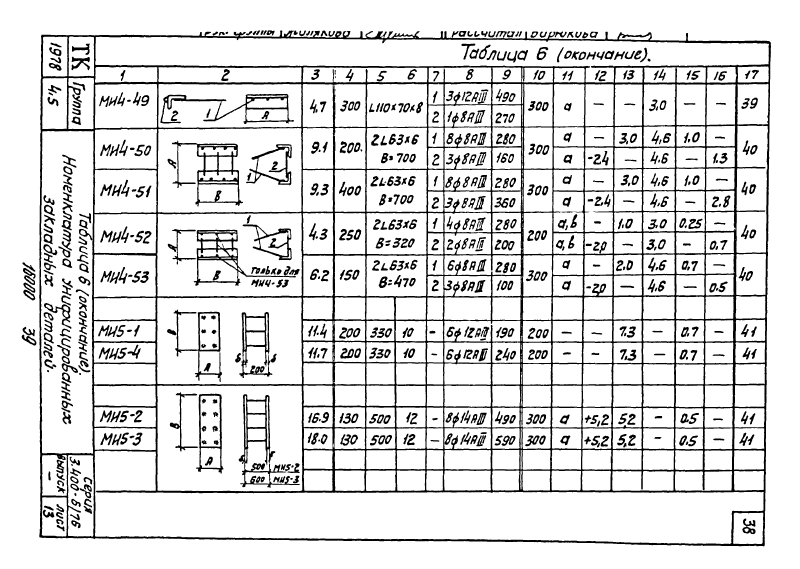 Таблица 6 (окончание).
1 2 3 4 5 6 7 8 9 10 11 12 13 14 15 16 17
МИ4-49 4,7 300 L110×70×8 1 3ф12АIII 490 300 а — — 3,0 — — 39
2 1ф8АIII 270
МИ4-50 9.1 200. 2L63×6 1 8ф8АIII 280 300 а — 3,0 4,6 1.0 — 40
В=700 2 3ф8АIII 160 а -2,4 — 4.6 — 1.3
МИ4-51 9.3 400 2L63×6 1 8ф8АIII 280 300 а — 3,0 4,6 1,0 — 40
В=700 2 3ф8АIII 360 а -2.4 — 4.6 — 2.8
МИ4-52 4.3 250 2L63×6 1 4ф8АIII 280 200 а,b — 1.0 3.0 0.25 — 40
В=320 2 2ф8АIII 200 а,b -2,0 — 3,0 — 0.7
МИ4-53 6.2 150 2L63×6 1 6ф8АIII 280 300 а — 2.0 4.6 0.7 — 40
В=470 2 3ф8АIII 100 а -2,0 — 4.6 — 0.5
МИ5-1 11.4 200 330 10 - 6ф12АIII 190 200 — — 7.3 — 0.7 — 41
МИ5-4 11.7 200 330 10 - 6ф12АIII 240 200 — — 7,3 — 0.7 — 41
МИ5-2 16.9 130 500 12 - 8ф14АIII 490 300 а +5,2 5,2 — 0.5 — 41
МИ5-3 18.0 130 500 12 - 8ф14АIII 590 300 а +5,2 5,2 — 0.5 — 41
2 1 А
А В 1 2
А В 1 2
только для
МИ4-53
В А Б Б 200
В А Б Б
500 МИ5-2
600 МИ5-3
ТК
1978
Группа
4,5
Таблица 6 (окончание).
Номенклатура унифицированных
закладных деталей.
16000 39
Серия
3.400-6/76
Выпуск —
Лист 13
38